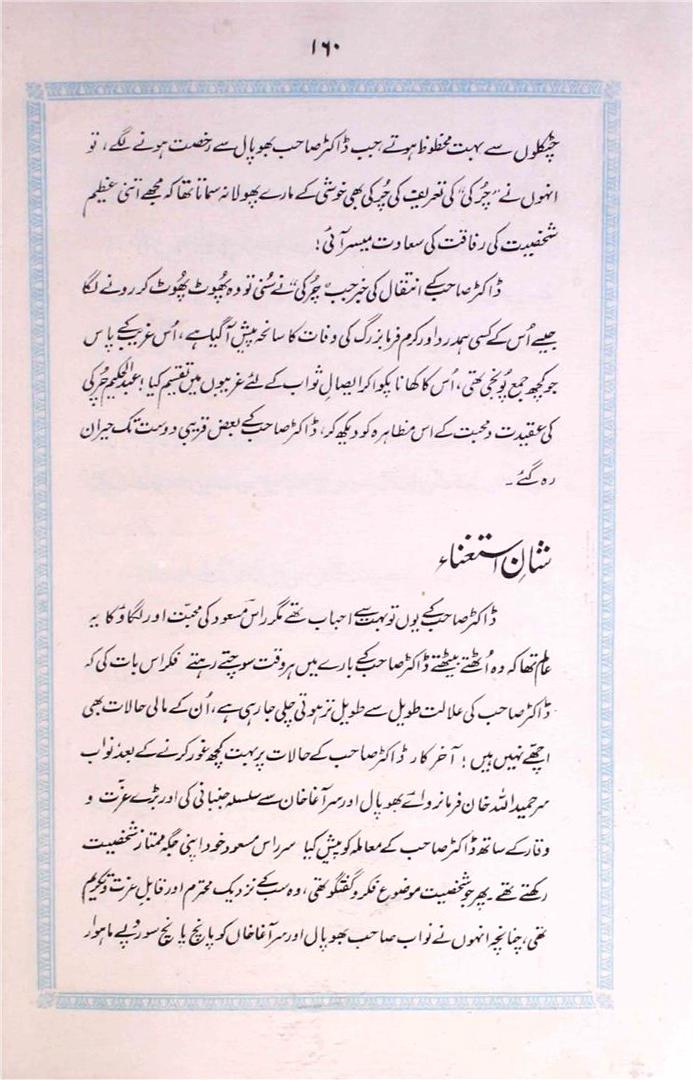 ۱۶۰
چٹکلوں سے بہت محظوظ ہوتے، جب ڈاکٹر صاحب بھوپال سے رخصت ہونے لگے، تو
انہوں نے "چُرکی" کی تعریف کی چُرکی بھی خوشی کے مارے پھولا نہ سماتا تھا کہ مجھے اتنی عظیم
شخصیت کی رفاقت کی سعادت میسر آئی!
ڈاکٹر صاحب کے انتقال کی خبر جب "چُرکی" نے سُنی تو وہ پُھوٹ پُھوٹ کر رونے لگا
جیسے اُس کے کسی ہمدرد اور کرم فرما بزرگ کی وفات کا سانحہ پیش آگیا ہے، اُس غریب کے پاس
جو کچھ جمع پُونجی تھی، اُس کا کھانا پکوا کر ایصالِ ثواب کے لئے غریبوں میں تقسیم کیا! عبدالحکیم چُرکی
کی عقیدت و محبت کے اس مظاہرہ کو دیکھ کر، ڈاکٹر صاحب کے بعض قریبی دوست تک حیران
رہ گئے۔
شانِ استغناء
ڈاکٹر صاحب کے یوں تو بہت سے احباب تھے مگر راس مسعود کی محبّت اور لگاؤ کا یہ
عالم تھا کہ وہ اُٹھتے بیٹھتے ڈاکٹر صاحب کے بارے میں ہر وقت سوچتے رہتے فکر اس بات کی کہ
ڈاکٹر صاحب کی علالت طویل سے طویل تر ہوتی چلی جا رہی ہے، اُن کے مالی حالات بھی
اچھے نہیں ہیں! آخر کار ڈاکٹر صاحب کے حالات پر بہت کچھ غور کرنے کے بعد نواب
سر حمید اللہ خان فرمانروائے بھوپال اور سر آغا خان سے سلسلہ جنبانی کی اور بڑے عزّت و
وقار کے ساتھ ڈاکٹر صاحب کے معاملہ کو پیش کیا سر راس مسعود خود اپنی جگہ ممتاز شخصیت
رکھتے تھے۔ پھر جو شخصیت موضوعِ فکر و گفتگو تھی، وہ سب کے نزدیک محترم اور قابلِ عزت و تکریم
تھی، چنانچہ انہوں نے نواب صاحب بھوپال اور سر آغا خاں کو پانچ پانچ سو روپے ماہوار